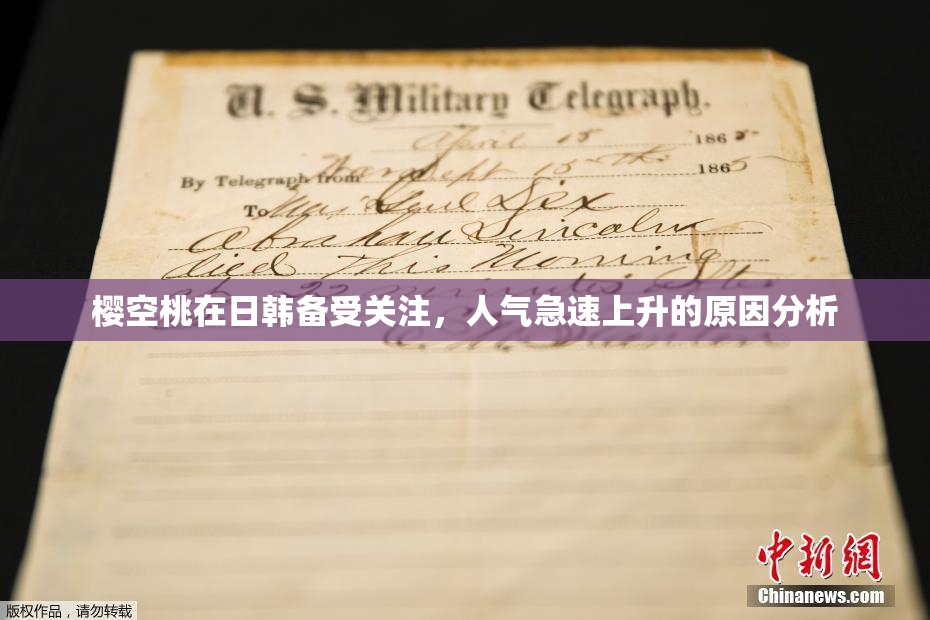 U. S. Military Telegraph.
April 15 1865
By Telegraph from War Dept 15th 1865
To Maj Genl Dix
Abraham Lincoln
died This Morning
at 22 minutes after
樱空桃在日韩备受关注，人气急速上升的原因分析
E. M. Stanton
中新网
Chinanews.com
版权作品，请勿转载